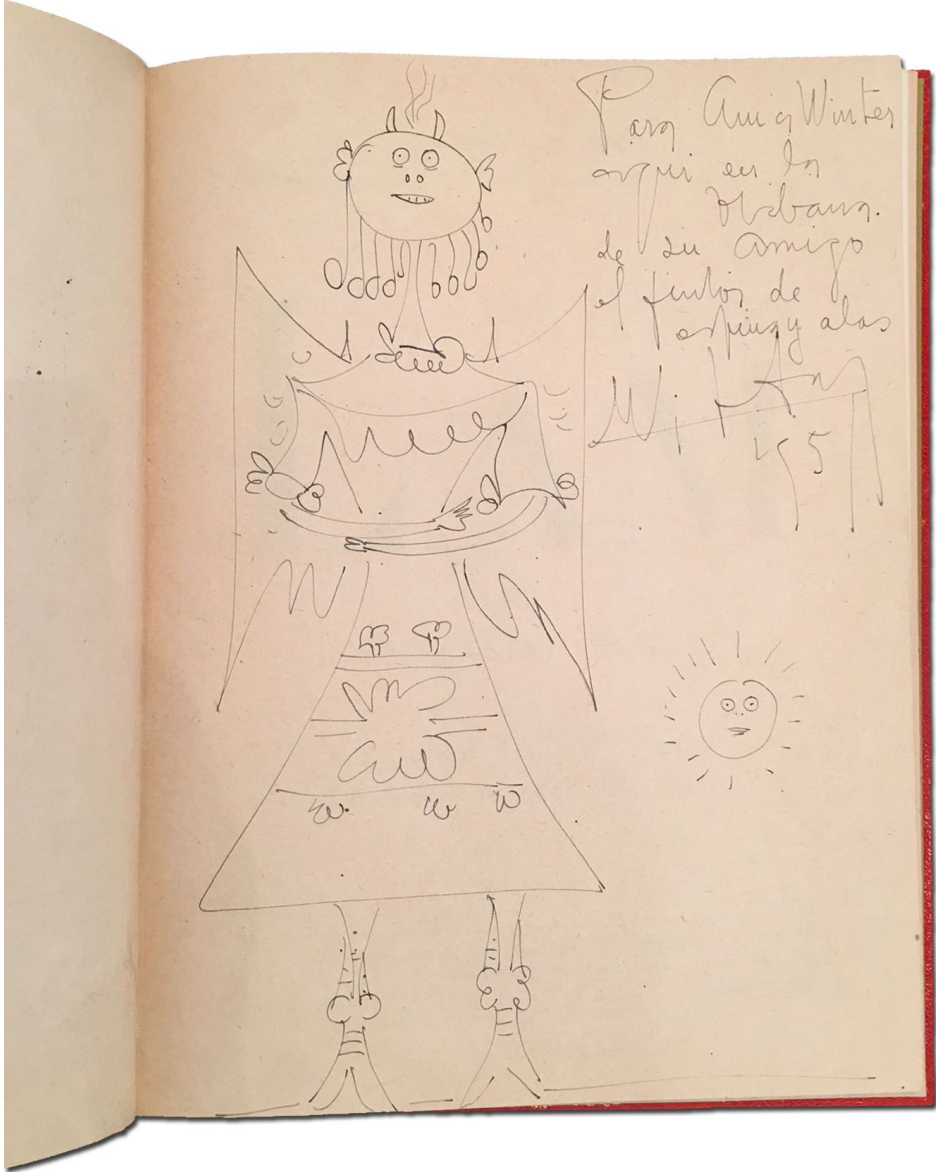 Para Ania Winter
aqui en la
Habana.
de su amigo
el pintor de
espina y alas
Wifr
55